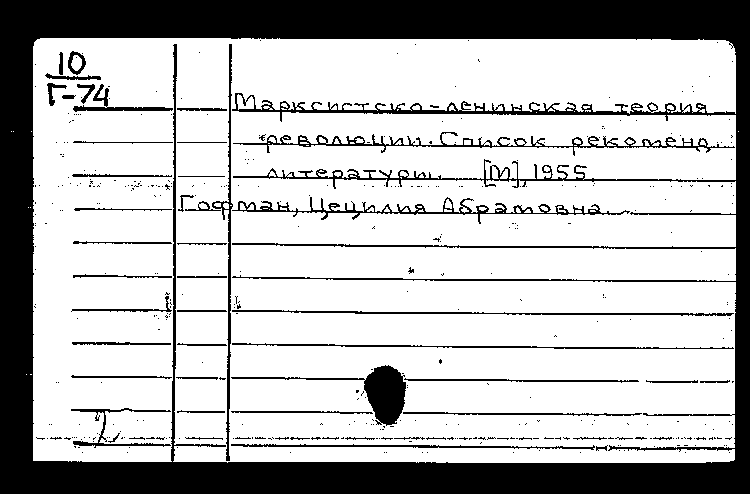 10
Г-74
Марксистско-ленинская теория
революции. Список рекоменд.
литературы. [М], 1955.
Гофман, Цецилия Абрамовна.
2